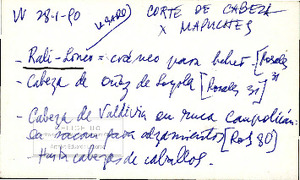 VV 28-1-90
CORTE DE CABEZA
X MAPUCHES
- Rali-Lonco = cráneo para beber - [Rosales
- Cabeza de Oñez de Loyola [Rosales 37]
- Cabeza de Valdivia en ruca Caupolicán:
la sacan para alzamientos [Ros 80]
- Hurta cabezas de caballos.